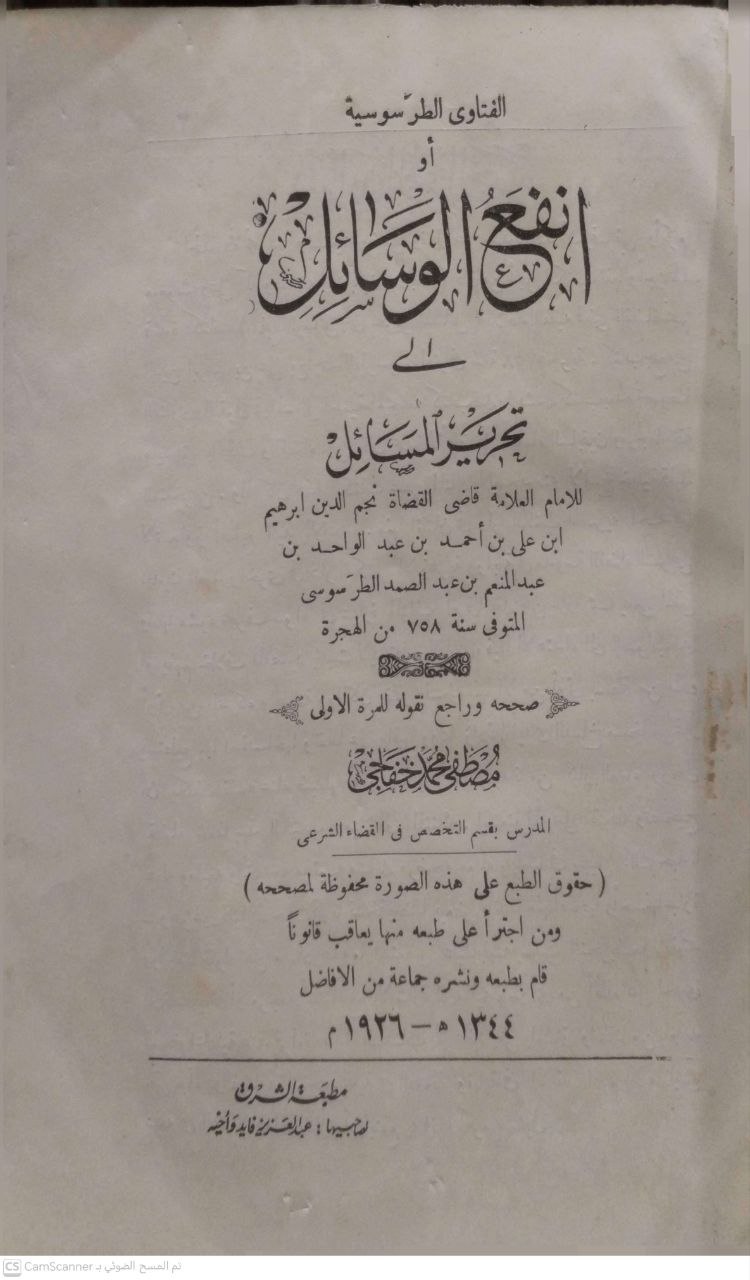 الفتاوى الطرَّسوسية
أو
انفع الوسائل
الى
تحرير المسائل
للامام العلامة قاضى القضاة نجم الدين ابرهيم
ابن على بن أحمد بن عبد الواحد بن
عبد المنعم بن عبد الصمد الطرَّسوسى
المتوفى سنة ٧٥٨ من الهجرة
صححه وراجع نقوله للمرة الاولى
مصطفى محمد خفاجى
المدرس بقسم التخصص فى القضاء الشرعى
( حقوق الطبع على هذه الصورة محفوظة لمصححه )
ومن اجترأ على طبعه منها يعاقب قانوناً
قام بطبعه ونشره جماعة من الافاضل
١٣٤٤ ه – ١٩٢٦ م
مطبعة الشرق
لصاحبيها : عبد العزيز فايد وأخيه
CS CamScanner تم المسح الضوئي بـ